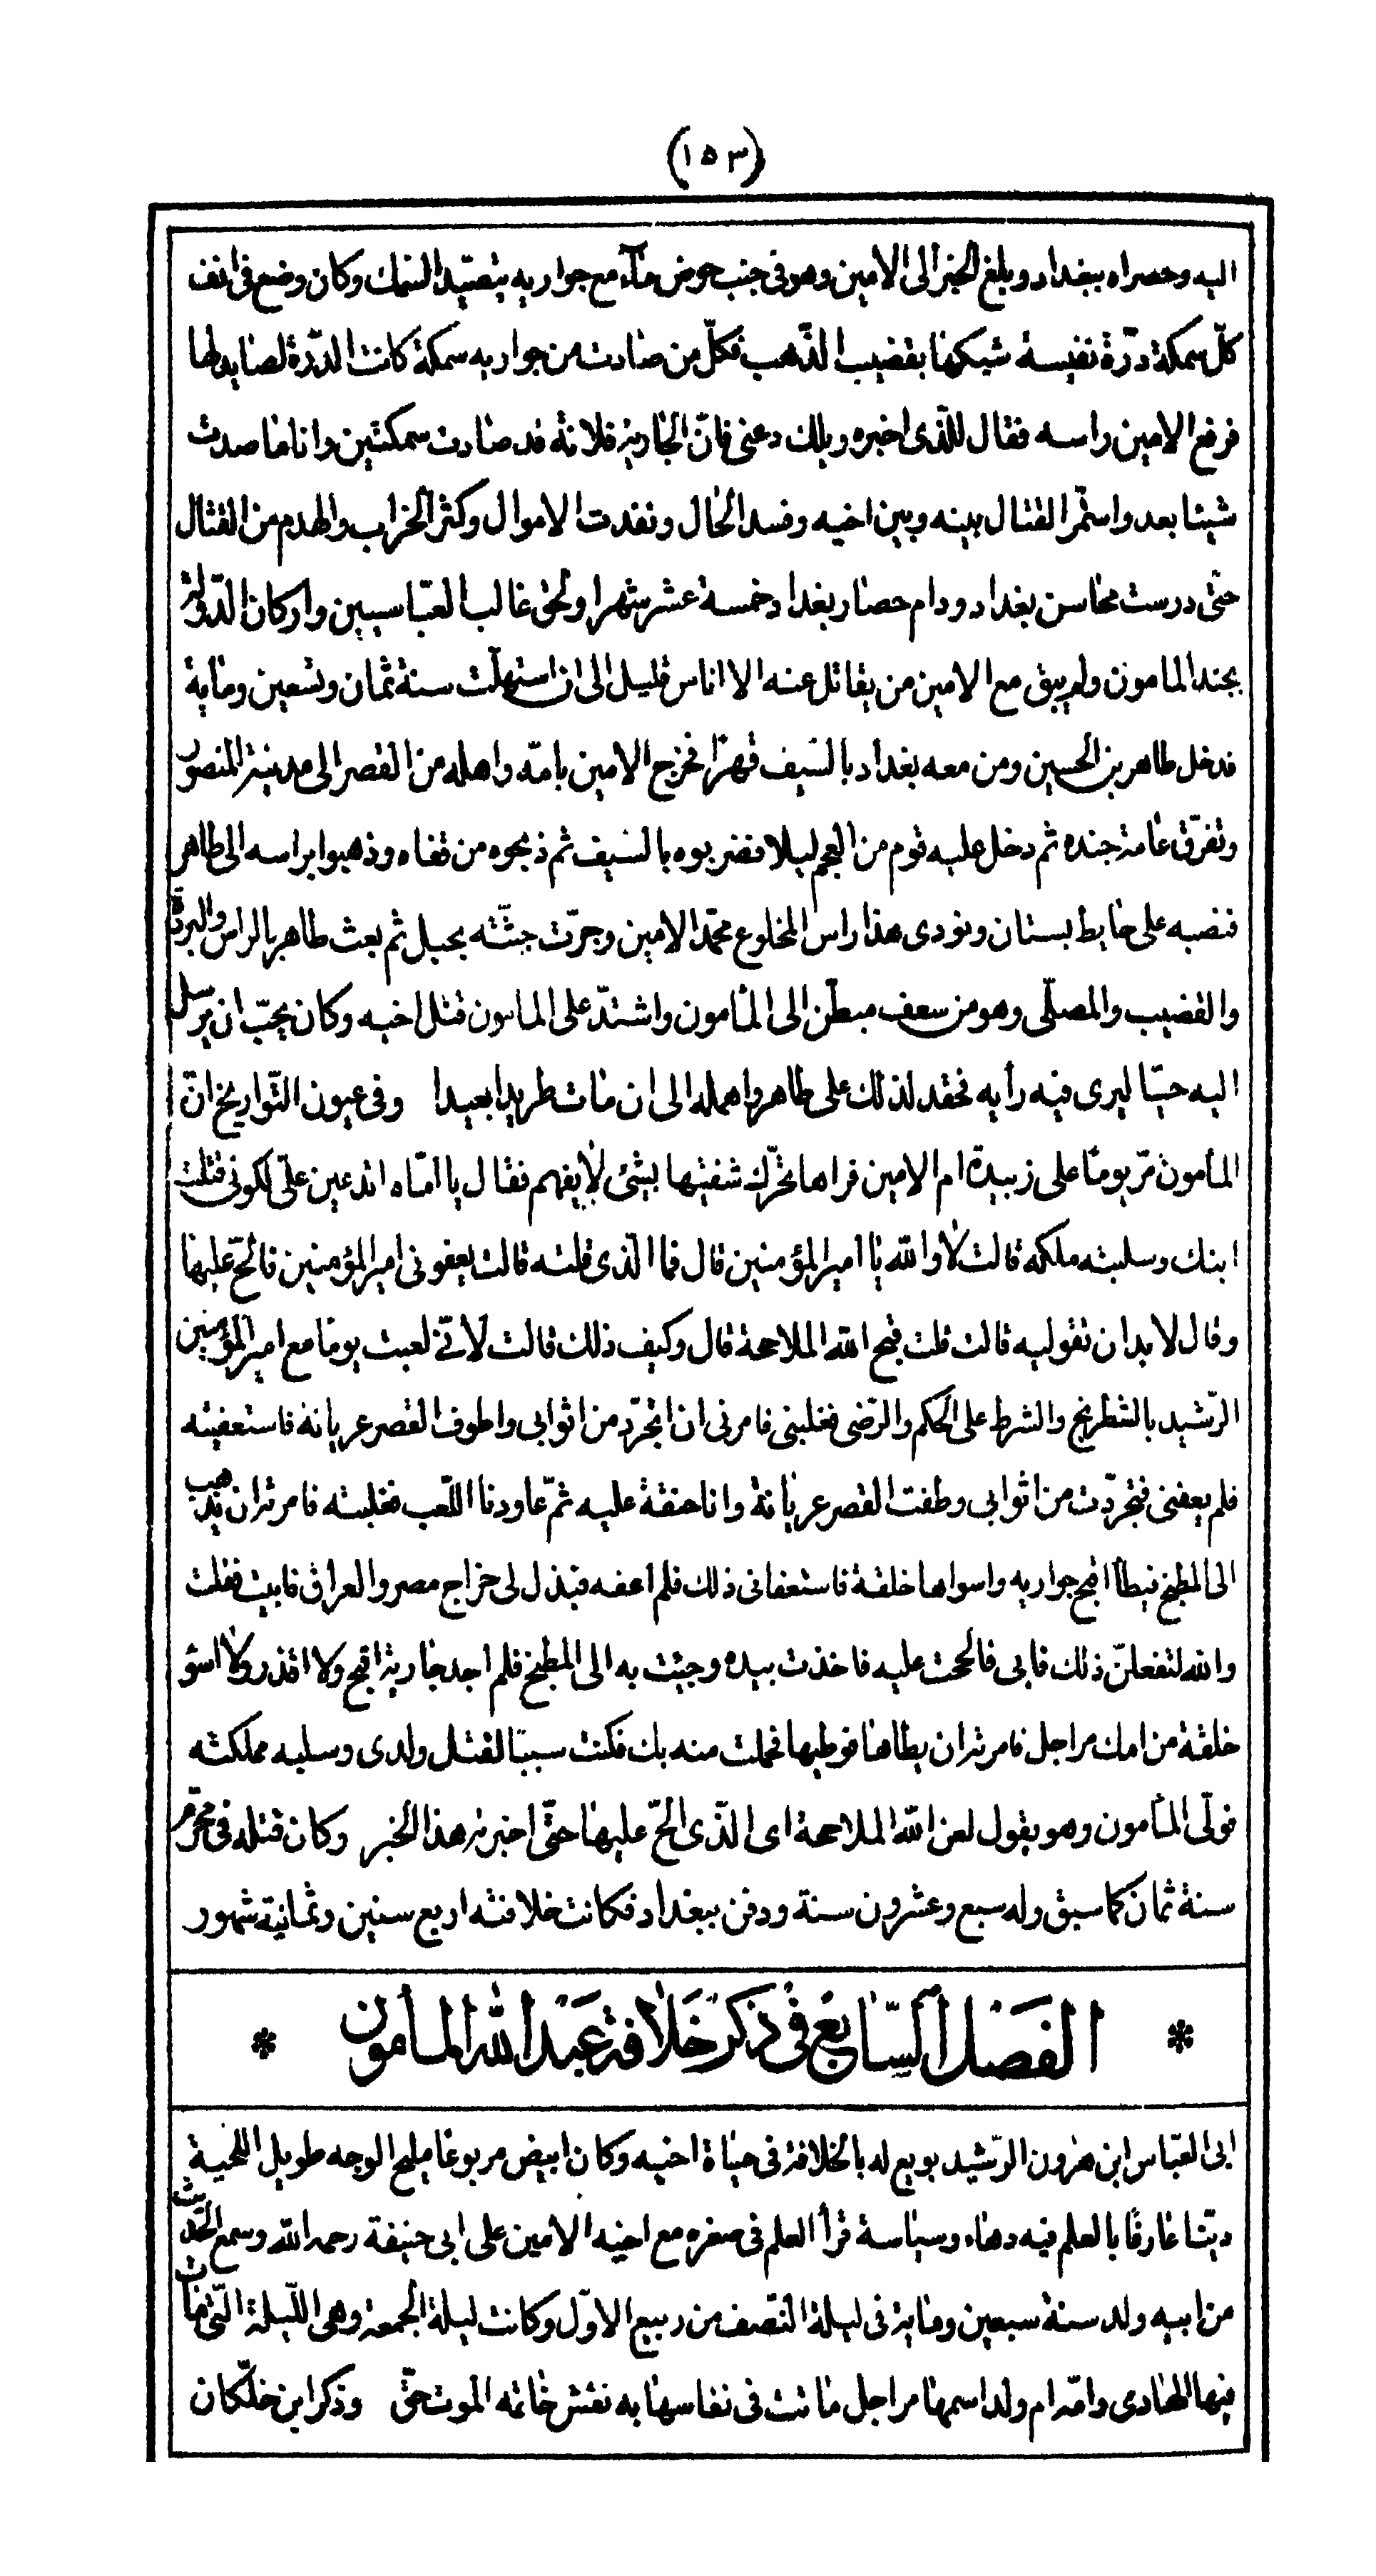 (١٥٣)
اليه وحصراه ببغداد وبلغ الخبر الى الامين وهو فى جنب حوض ماء مع جواريه يتصيد السمك وكان وضع فى انف
كلّ سمكة درّة نفيسة شبكها بقضيب الذّهب فكلّ من صادت من جواريه سمكة كانت الدّرّة لصايدها
فرفع الامين راسه فقال للّذى اخبره ويلك دعنى فانّ الجارية فلانة قد صادت سمكتين وانا ما صدت
شيئا بعد واستمّر القتال بينه وبين اخيه وفسد الحال ونفدت الاموال وكثر الخراب والهدم من القتال
حتّى درست محاسن بغداد ودام حصار بغداد خمسة عشر شهرا ولحق غالب العبّاسيين واركان الدّولة
بجند المامون ولم يبق مع الامين من يقاتل عنه الا اناس قليل الى ان استهلّت سنة ثمان وتسعين ومايه
فدخل طاهر بن الحسين ومن معه بغداد بالسّيف قهرًا فخرج الامين بامّه واهله من القصر الى مدينة المنصور
وتفرّق عامة جنده ثم دخل عليه قوم من العجم ليلا فضربوه بالسّيف ثم ذبحوه من قفاه وذهبوا براسه الى طاهر
فنصبه على حايط بستان ونودى هذا راس المخلوع محمّد الامين وجرّت جثّته بحبل ثم بعث طاهر بالراس والبردة
والقضيب والمصلّى وهو من سعف مبطّن الى المأمون واشتدّ على المامون قتل اخيه وكان يحبّ ان يرسل
اليه حيّا ليرى فيه رأيه فحقد لذلك على طاهر واهمله الى ان مات طريدا بعيدا وفى عيون التّواريخ انّ
المأمون مرّ يومًا على زبيدة ام الامين فراها تحرّك شفتيها بشئ لا يفهم فقال يا امّاه اتدعين علىّ لكونى قتلت
ابنك وسلبته ملكه قالت لا والله يا امير المؤمنين قال فما الّذى قلته قالت يعفونى امير المؤمنين فالحّ عليها
وقال لا بد ان تقوليه قالت قلت قبح الله الملاححة قال وكيف ذلك قالت لانّى لعبت يومًا مع امير المؤمنين
الرّشيد بالشطرنج والشرط على الحكم والرّضى فغلبنى فامرنى ان اتجرّد من اثوابى واطوف القصر عريانة فاستعفيته
فلم يعفنى فتجرّدت من اثوابى وطفت القصر عريانة وانا حنقة عليه ثمّ عاودنا اللّعب فغلبته فامرته ان يذهب
الى المطبخ فيطأ اقبح جواريه واسواها خلقة فاستعفانى ذلك فلم اعفه فبذل لى خراج مصر والعراق فابيت فقلت
والله لتفعلنّ ذلك فابى فالححت عليه فاخذت بيده وجئت به الى المطبخ فلم اجد جارية اقبح ولا اقذر ولا اسؤ
خلقة من امك مراجل فامرته ان يطاها فوطيها فحملت منه بك فكنت سببًا لقتل ولدى وسلبه مملكته
فولّى المأمون وهو يقول لعن الله الملاححة اى الّذى الحّ عليها حتّى اخبرته هذا الخبر وكان قتله فى محرّم
سنة ثمان كما سبق وله سبع وعشرون سنة ودفن ببغداد فكانت خلافته اربع سنين وثمانية شهور
* الفصل السّابع فى ذكر خلافة عبد الله المأمون *
ابى العبّاس ابن هرون الرّشيد بويع له بالخلافة فى حياة اخيه وكان ابيض مربوعًا مليح الوجه طويل اللحية
ديّنا عارفًا بالعلم فيه دهاء وسياسة قرأ العلم فى صغره مع اخيه الامين على ابى حنيفة رحمه الله وسمع الحديث
من ابيه ولد سنة سبعين وماية فى ليلة النّصف من ربيع الاوّل وكانت ليلة الجمعة وهى اللّيلة الّتى مات
فيها الهادى وامّه ام ولد اسمها مراجل ماتت فى نفاسها به نقش خاتمه الموت حقّ وذكر ابن خلّكان